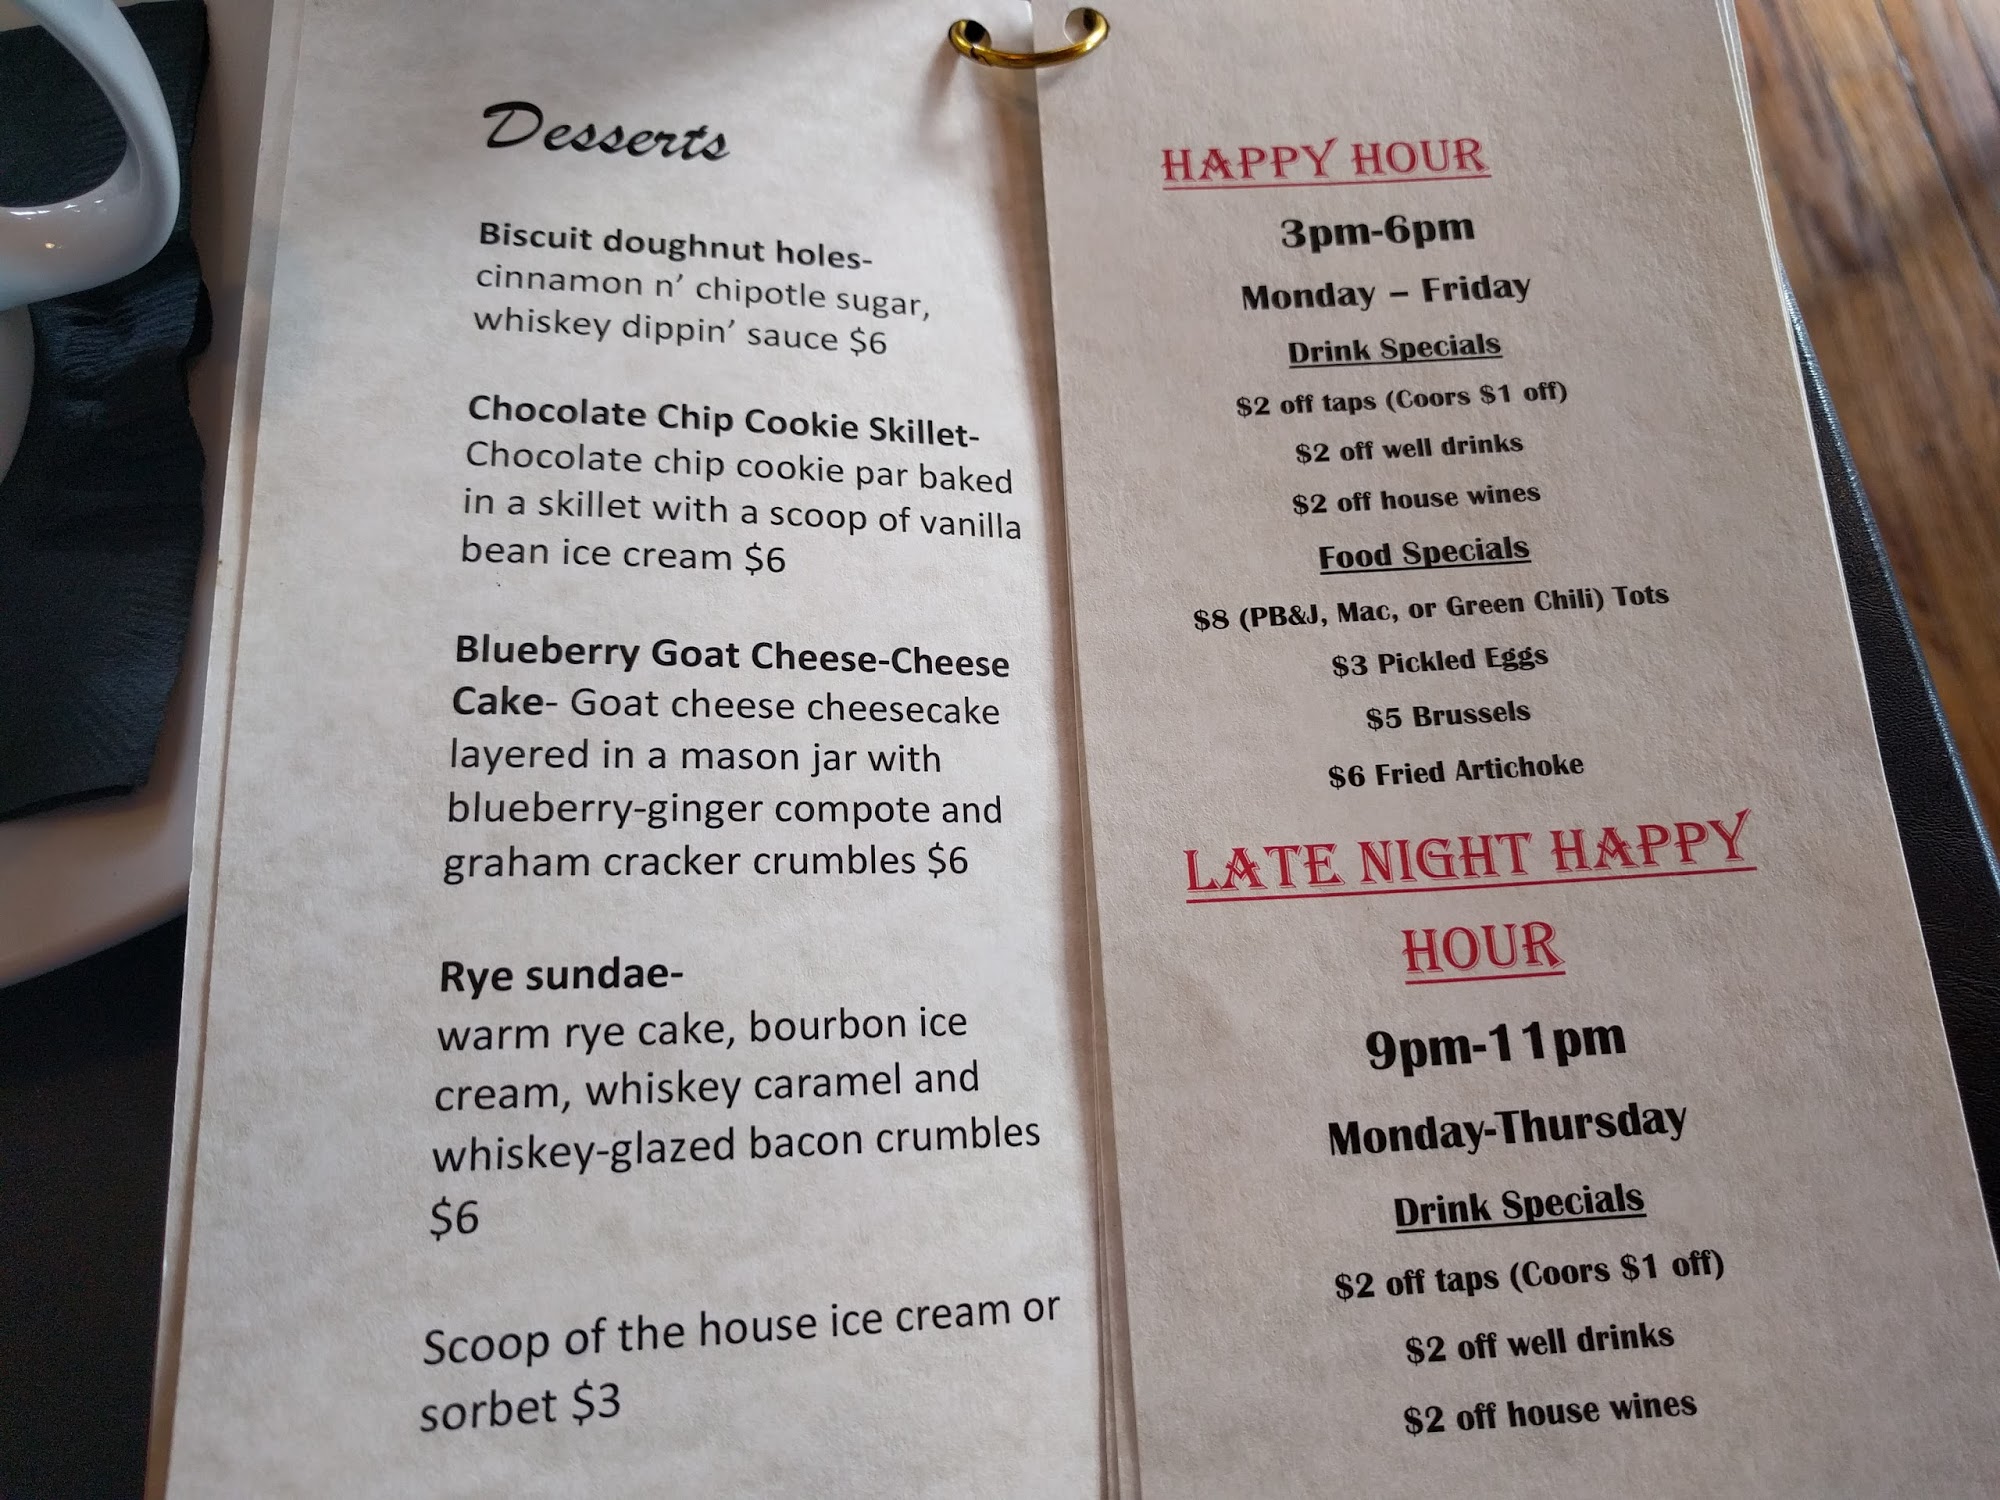 Desserts
Biscuit doughnut holes-
cinnamon n’ chipotle sugar,
whiskey dippin’ sauce $6
Chocolate Chip Cookie Skillet-
Chocolate chip cookie par baked
in a skillet with a scoop of vanilla
bean ice cream $6
Blueberry Goat Cheese-Cheese
Cake- Goat cheese cheesecake
layered in a mason jar with
blueberry-ginger compote and
graham cracker crumbles $6
Rye sundae-
warm rye cake, bourbon ice
cream, whiskey caramel and
whiskey-glazed bacon crumbles
$6
Scoop of the house ice cream or
sorbet $3
HAPPY HOUR
3pm-6pm
Monday – Friday
Drink Specials
$2 off taps (Coors $1 off)
$2 off well drinks
$2 off house wines
Food Specials
$8 (PB&J, Mac, or Green Chili) Tots
$3 Pickled Eggs
$5 Brussels
$6 Fried Artichoke
LATE NIGHT HAPPY
HOUR
9pm-11pm
Monday-Thursday
Drink Specials
$2 off taps (Coors $1 off)
$2 off well drinks
$2 off house wines